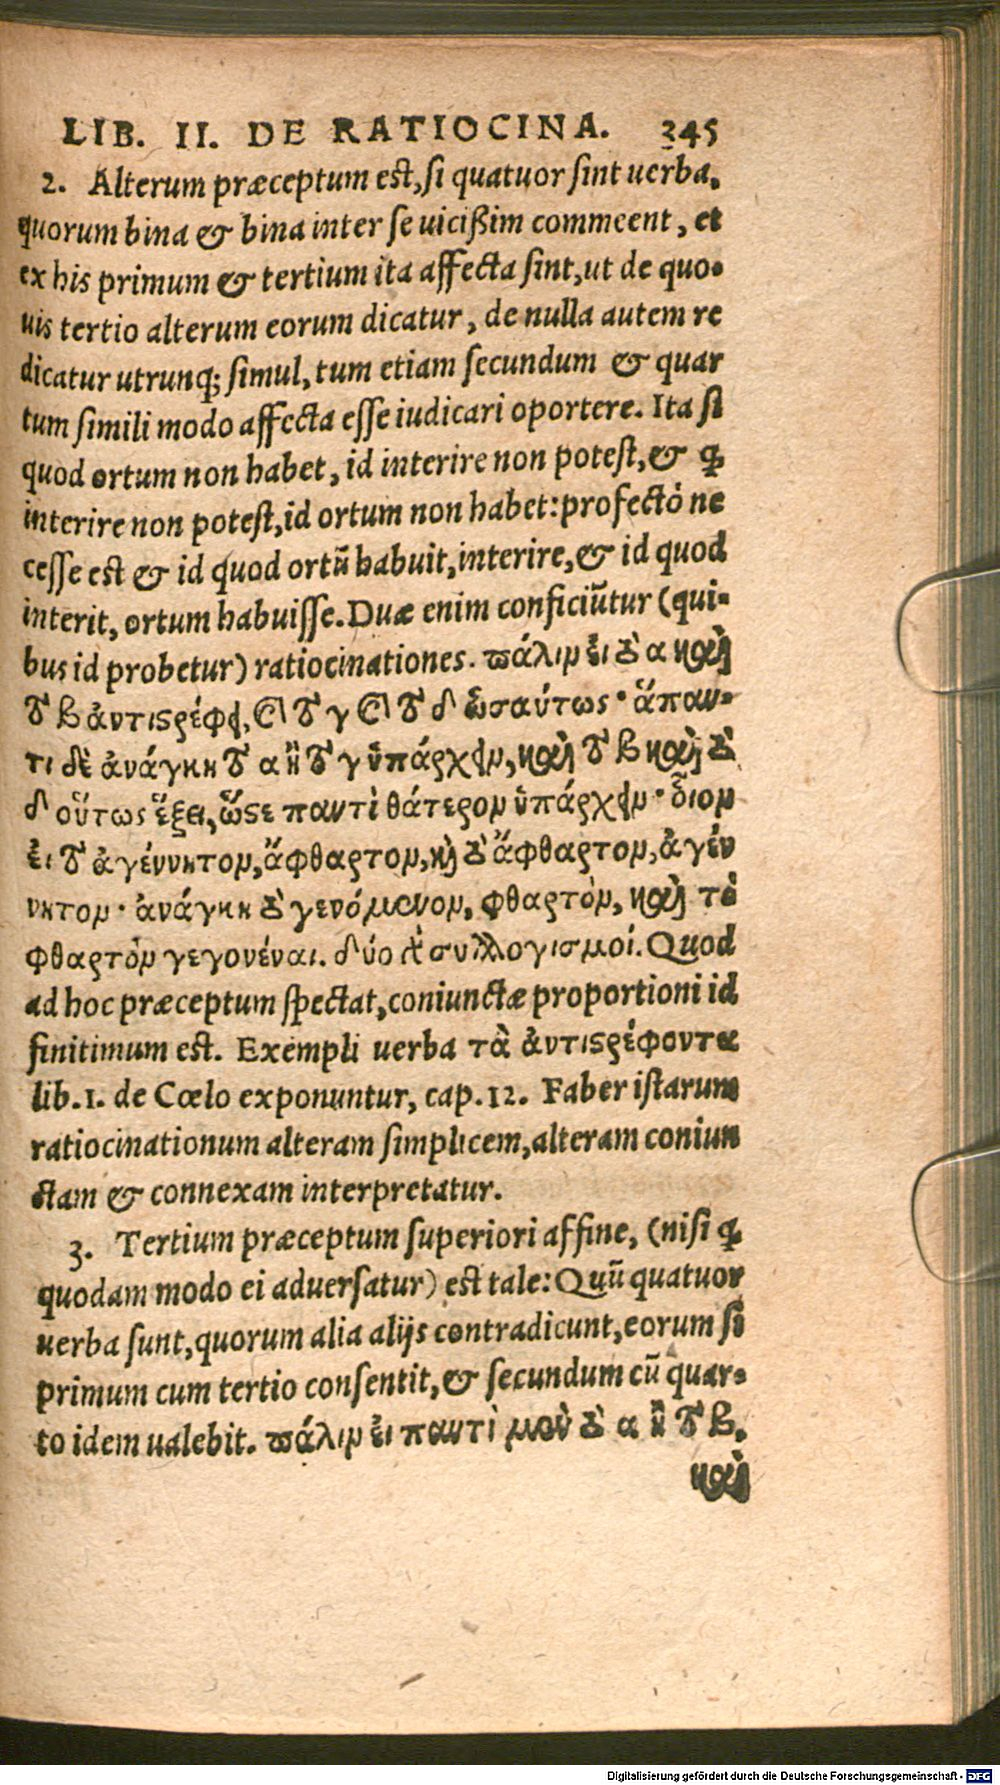 LIB. II. DE RATIOCINA. 345
2. Alterum præceptum est, si quatuor sint uerba,
quorum bina & bina inter se uicißim commeent, et
ex his primum & tertium ita affecta sint, ut de quo-
uis tertio alterum eorum dicatur, de nulla autem re
dicatur utrunq; simul, tum etiam secundum & quar
tum simili modo affecta esse iudicari oportere. Ita si
quod ortum non habet, id interire non potest, & ꝙ
interire non potest, id ortum non habet: profectò ne
cesse est & id quod ortũ habuit, interire, & id quod
interit, ortum habuisse. Duæ enim conficiũtur (qui-
bus id probetur) ratiocinationes. πάλιν εἰ τὸ α καὶ
τὸ β ἀντιστρέφει, καὶ τὸ γ καὶ τὸ δ ὡσαύτως· ἅπαν-
τι δὲ ἀνάγκη τὸ α ἢ τὸ γ ὑπάρχειν, καὶ τὸ β καὶ τὸ
δ οὕτως ἕξει, ὥστε παντὶ θάτερον ὑπάρχειν· οἷον
εἰ τὸ ἀγέννητον, ἄφθαρτον, καὶ τὸ ἄφθαρτον, ἀγέν
νητον· ἀνάγκη τὸ γενόμενον, φθαρτὸν, καὶ τὸ
φθαρτὸν γεγονέναι. δύο γὰρ συλλογισμοί. Quod
ad hoc præceptum spectat, coniunctæ proportioni id
finitimum est. Exempli uerba τὰ ἀντιστρέφοντα
lib. 1. de Cœlo exponuntur, cap. 12. Faber istarum
ratiocinationum alteram simplicem, alteram coniun
ctam & connexam interpretatur.
3. Tertium præceptum superiori affine, (nisi ꝙ
quodam modo ei aduersatur) est tale: Quũ quatuor
uerba sunt, quorum alia alijs contradicunt, eorum si
primum cum tertio consentit, & secundum cũ quar-
to idem ualebit. πάλιν εἰ παντὶ μὲν τὸ α ἢ τὸ β,
καὶ
Digitalisierung gefördert durch die Deutsche Forschungsgemeinschaft - DFG